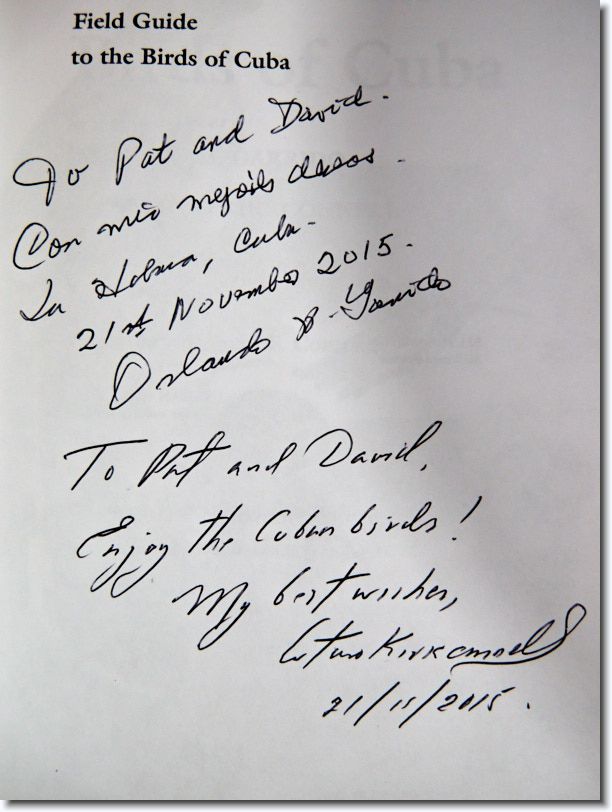 Field Guide
to the Birds of Cuba
To Pat and David.
Con mis mejores deseos.
La Habana, Cuba.
21st November 2015.
Orlando H. Garrido
To Pat and David,
Enjoy the Cuban birds!
My best wishes,
Arturo Kirkconnell
21/11/2015.